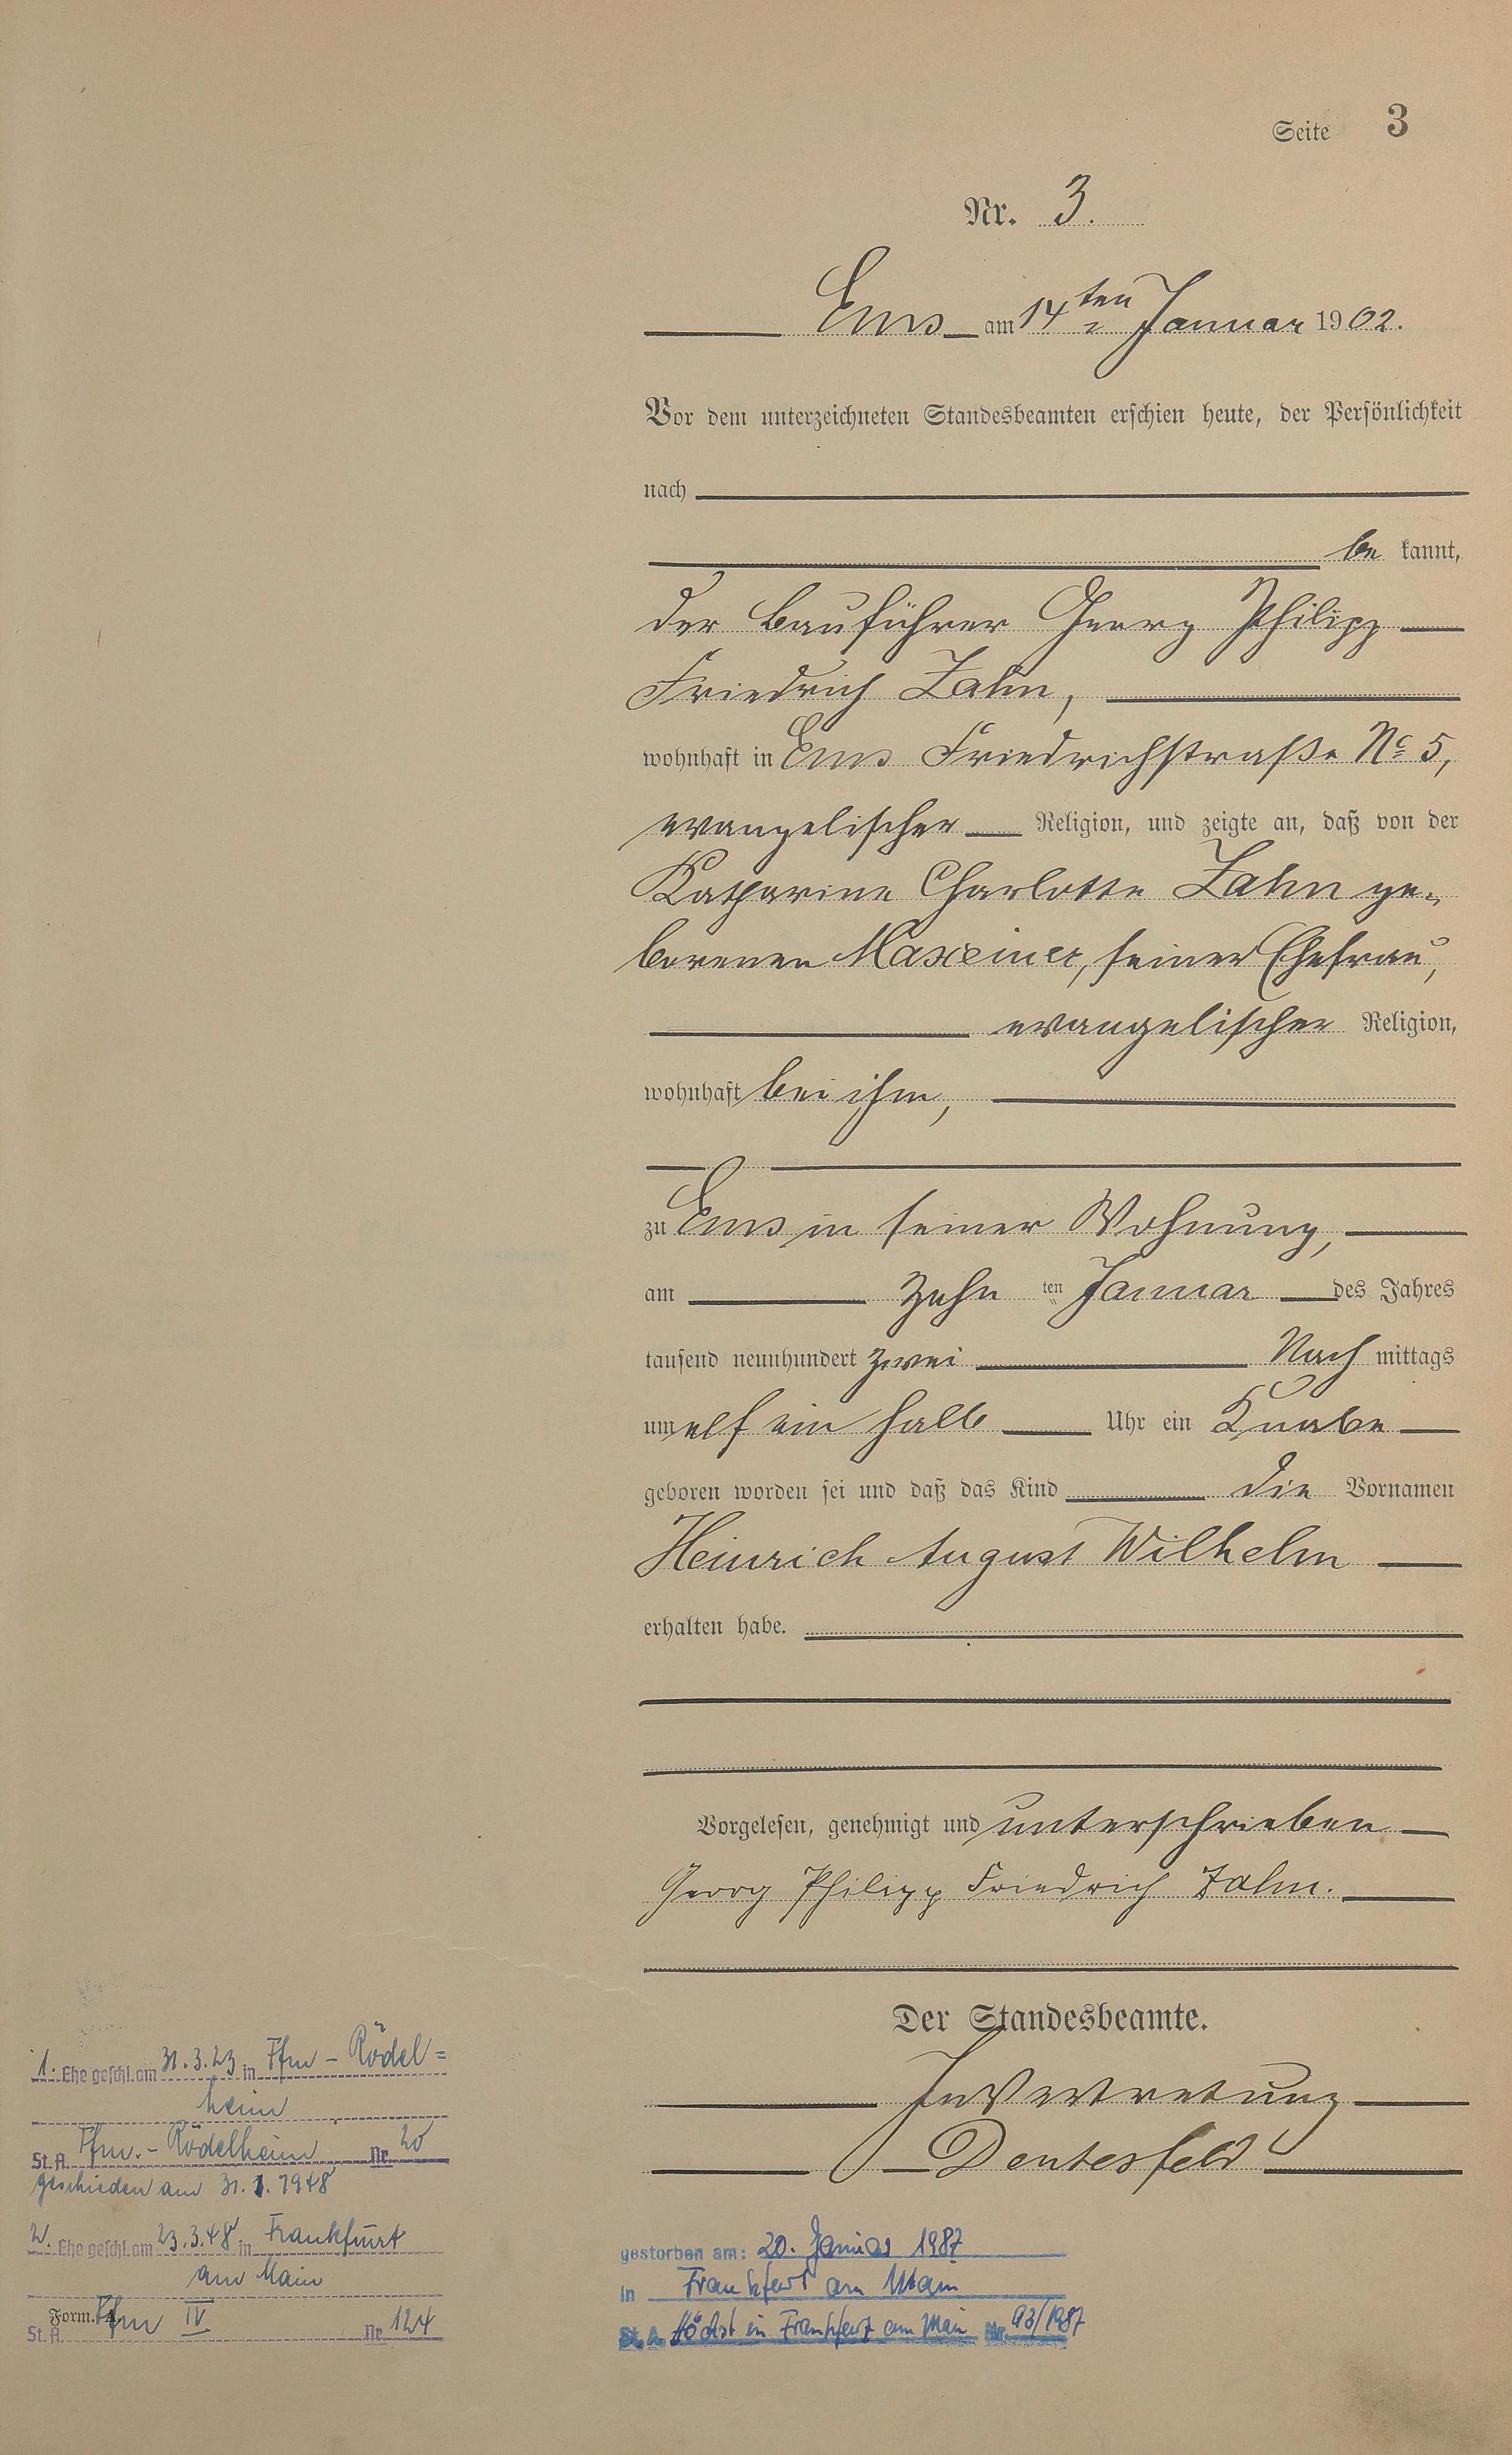 Seite 3
Nr. 3.
Ems am 14ten Januar 1902.
Vor dem unterzeichneten Standesbeamten erschien heute, der Persönlichkeit
nach
be kannt,
der Bauführer Georg Philipp
Friedrich Zahn,
wohnhaft in Ems Friedrichstraße No 5,
evangelischer Religion, und zeigte an, daß von der
Katharine Charlotte Zahn ge-
borenen Maxeiner, seiner Ehefrau,
evangelischer Religion,
wohnhaft bei ihm,
zu Ems in seiner Wohnung,
am zehn ten Januar des Jahres
tausend neunhundert zwei Nach mittags
um elf ein halb Uhr ein Knabe
geboren worden sei und daß das Kind die Vornamen
Heinrich August Wilhelm
erhalten habe.
Vorgelesen, genehmigt und unterschrieben
Georg Philipp Friedrich Zahn.
Der Standesbeamte.
In Vertretung
Dentesfeld
1. Ehe geschl. am 31.3.23 in Ffm - Rödel=
heim
St. A. Ffm. - Rödelheim Nr. 20
geschieden am 31. 1. 1948
2. Ehe geschl. am 23.3.48 in Frankfurt
am Main
Form.
St. A. Ffm IV Nr. 124
gestorben am: 20. Januar 1987
in Frankfurt am Main
St. A. Höchst in Frankfurt am Main Nr. 93/1987